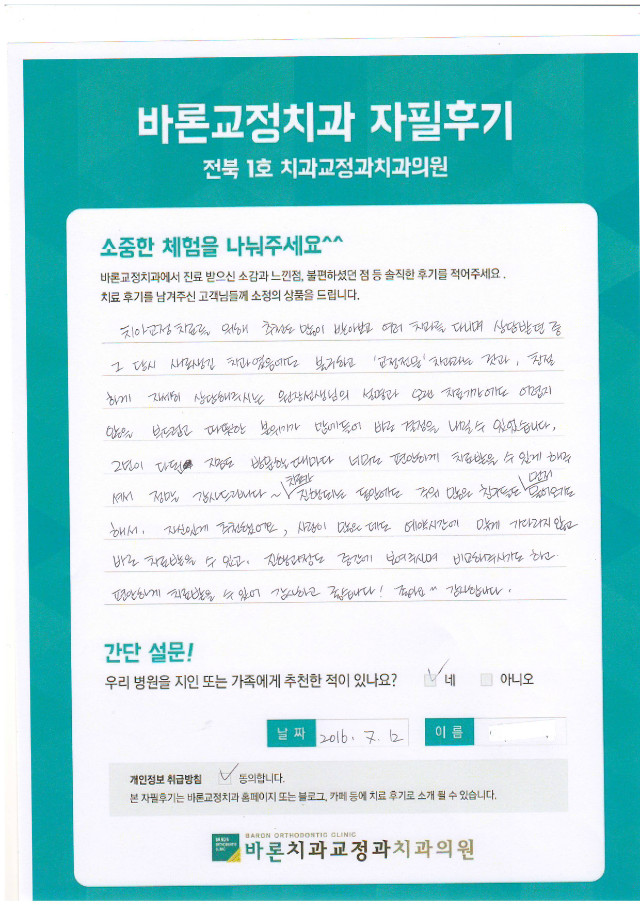 바론교정치과 자필후기
전북 1호 치과교정과치과의원
소중한 체험을 나눠주세요^^
바론교정치과에서 진료 받으신 소감과 느낀점, 불편하셨던 점 등 솔직한 후기를 적어주세요.
치료 후기를 남겨주신 고객님들께 소정의 상품을 드립니다.
치아교정 치료를 위해 추천도 많이 받아보고 여러 치과를 다니며 상담받던 중
그 당시 사람생긴 치과였음에도 불구하고 '교정전문' 치과라는 것과, 친절
하게 자세히 상담해주시는 원장선생님의 설명과 오랜 치료기간에도 어렵지
않을 부드럽고 따뜻한 분위기가 맘에들어 바로 결정을 내릴 수 있었습니다.
2년이 다된 지금도 방문할때마다 너무나 편안하게 치료받을 수 있게 해주
셔서 정말 감사드립니다~ 치료가 진행되는 동안에도 주위 많은 친구들도 먼저 물어오기도
해서. 자신있게 추천했었고, 사람이 많은데도 예약시간에 맞게 기다리지 않고
바로 치료받을 수 있고. 진행과정도 중간에 보여주시며 비교해주시기도 하고
편안하게 치료받을 수 있어 감사하고 좋습니다! 감사합니다.
간단 설문!
우리 병원을 지인 또는 가족에게 추천한 적이 있나요? 네 아니오
날 짜 2016. 7. 12 이 름
개인정보 취급방침 동의합니다.
본 자필후기는 바론교정치과 홈페이지 또는 블로그, 카페 등에 치료 후기로 소개 될 수 있습니다.
BARON ORTHODONTIC CLINIC
바론치과교정과치과의원